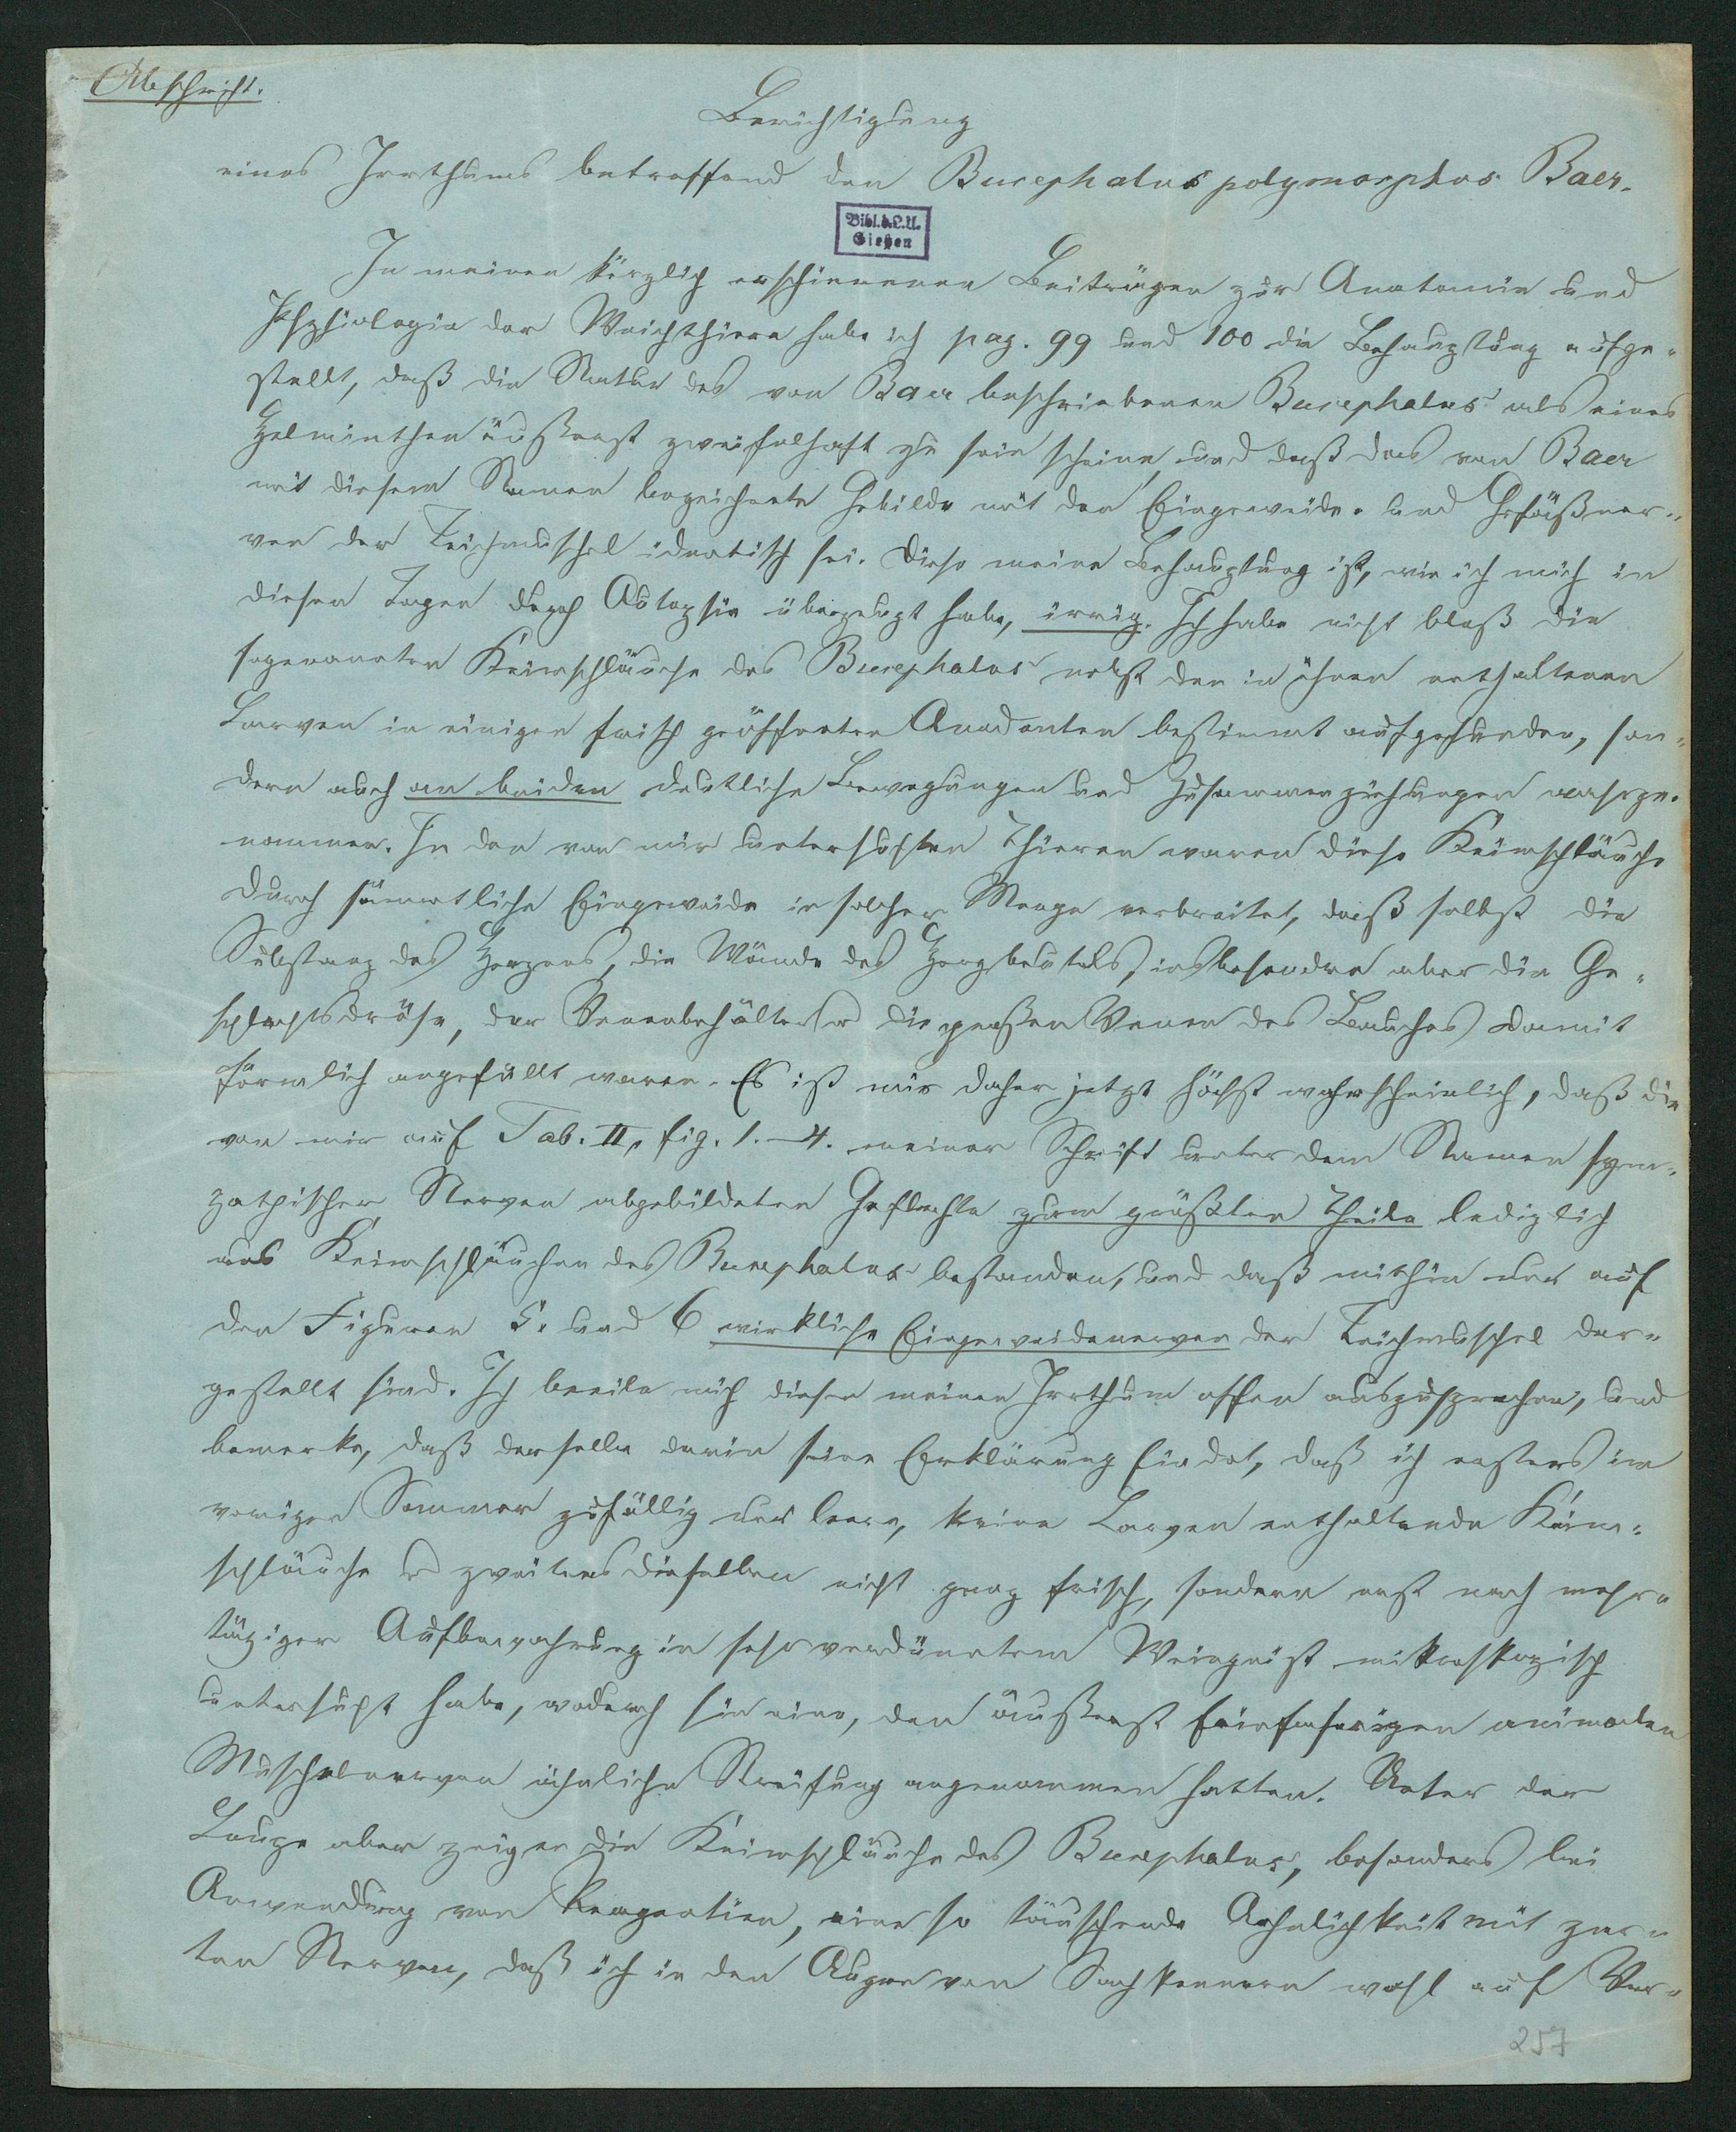 Abschrift.
Berichtigung
eines Irrthums betreffend den Bucephalus polymorphus Baer.
Bibl. d. L. U.
Gießen
In meinen kürzlich erschienenen Beiträgen zur Anatomie und
Physiologie der Weichthiere habe ich pag. 99 und 100 die Behauptung aufge-
stellt, daß die Natur des von Baer beschriebenen Bucephalus als eines
Helminthen äußerst zweifelhaft zu sein scheine, und daß das von Baer
mit diesem Namen bezeichnete Gebilde mit den Eingeweide- und Gefäßner-
ven der Teichmuschel identisch sei. Diese meine Behauptung ist, wie ich mich in
diesen Tagen durch Autopsie überzeugt habe, irrig. Ich habe nicht bloß die
sogenannten Keimschläuche des Bucephalus nebst den in ihnen enthaltenen
Larven in einigen frisch geöffneten Anodonten bestimmt aufgefunden, son-
dern auch an beiden deutliche Bewegungen und Zusammenziehungen wahrge-
nommen. In den von mir untersuchten Thieren waren diese Keimschläuche
durch sämmtliche Eingeweide in solcher Menge verbreitet, daß selbst die
Substanz des Herzens, die Wände des Herzbeutels, insbesondre aber die Ge-
schlechtsdrüse, der Venenbehälter u die großen Venen des Bauches damit
förmlich angefüllt waren. Es ist mir daher jetzt höchst wahrscheinlich, daß die
von mir auf Tab. II, fig. 1.-4. meiner Schrift unter dem Namen sym-
pathischer Nerven abgebildeten Geflechte zum größten Theile lediglich
aus Keimschläuchen des Bucephalus bestanden, und daß mithin nur auf
den Figuren 5. und 6 wirkliche Eingeweidenerven der Teichmuschel dar-
gestellt sind. Ich beeile mich diesen meinen Irrthum offen auszusprechen, und
bemerke, daß derselbe darin seine Erklärung findet, daß ich erstens im
vorigen Sommer zufällig nur leere, keine Larven enthaltende Keim-
schläuche u zweitens dieselben nicht ganz frisch, sondern erst nach mehr-
tägiger Aufbewahrung in sehr verdünntem Weingeist mikroskopisch
untersucht habe, wodurch sie eine, den äußerst feinfaserigen animalen
Muschelnerven ähnliche Streifung angenommen hatten. Unter der
Loupe aber zeigen die Keimschläuche des Bucephalus, besonders bei
Anwendung von Reagentien, eine so täuschende Aehnlichkeit mit zar-
ten Nerven, daß ich in den Augen von Sachkennern wohl auf Ver-
257